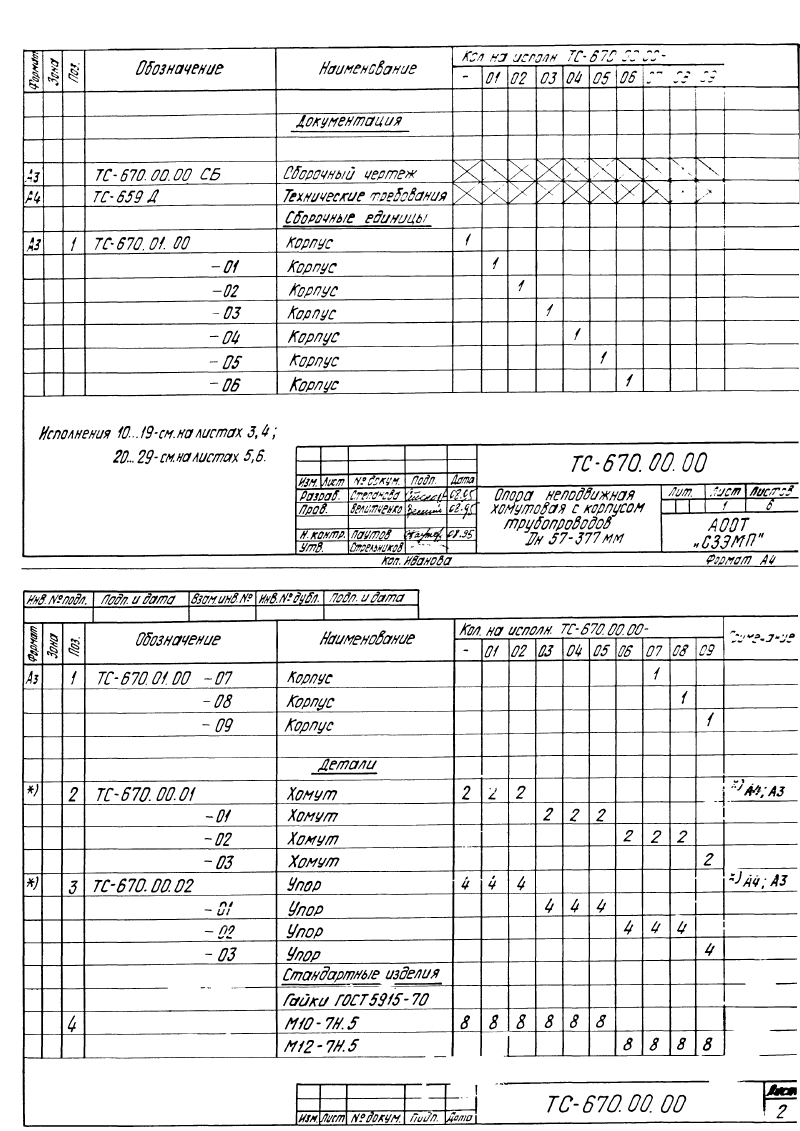 Формат Зона Поз. Обозначение Наименование Кол на исполн ТС-670 00.00-
- 01 02 03 04 05 06 07 08 09
Документация
А3 ТС-670.00.00 СБ Сборочный чертеж
А4 ТС-659 Д Технические требования
Сборочные единицы
А3 1 ТС-670.01.00 Корпус 1
-01 Корпус 1
-02 Корпус 1
-03 Корпус 1
-04 Корпус 1
-05 Корпус 1
-06 Корпус 1
Исполнения 10...19-см.на листах 3,4;
20...29-см.на листах 5,6.
ТС-670.00.00
Изм. Лист № докум. Подп. Дата
Разраб. Степанова 02.95
Пров. Велитченко 02.95
Н.контр. Паутов 08.95
Утв. Стрельников
Опора неподвижная
хомутовая с корпусом
трубопроводов
Дн 57-377 мм
Лит. Лист Листов
1 6
АООТ
„СЗЭМП"
Коп. Иванова Формат А4
Инв. № подл. Подп. и дата Взам.инв.№ Инв.№ дубл. Подп. и дата
Формат Зона Поз. Обозначение Наименование Кол. на исполн. ТС-670.00.00- Примечание
- 01 02 03 04 05 06 07 08 09
А3 1 ТС-670.01.00 -07 Корпус 1
-08 Корпус 1
-09 Корпус 1
Детали
*) 2 ТС-670.00.01 Хомут 2 2 2 *) А4; А3
-01 Хомут 2 2 2
-02 Хомут 2 2 2
-03 Хомут 2
*) 3 ТС-670.00.02 Упор 4 4 4 *) А4; А3
-01 Упор 4 4 4
-02 Упор 4 4 4
-03 Упор 4
Стандартные изделия
Гайки ГОСТ 5915-70
4 М10-7Н.5 8 8 8 8 8 8
М12-7Н.5 8 8 8 8
Изм. Лист № докум. Подп. Дата
ТС-670.00.00
Лист
2